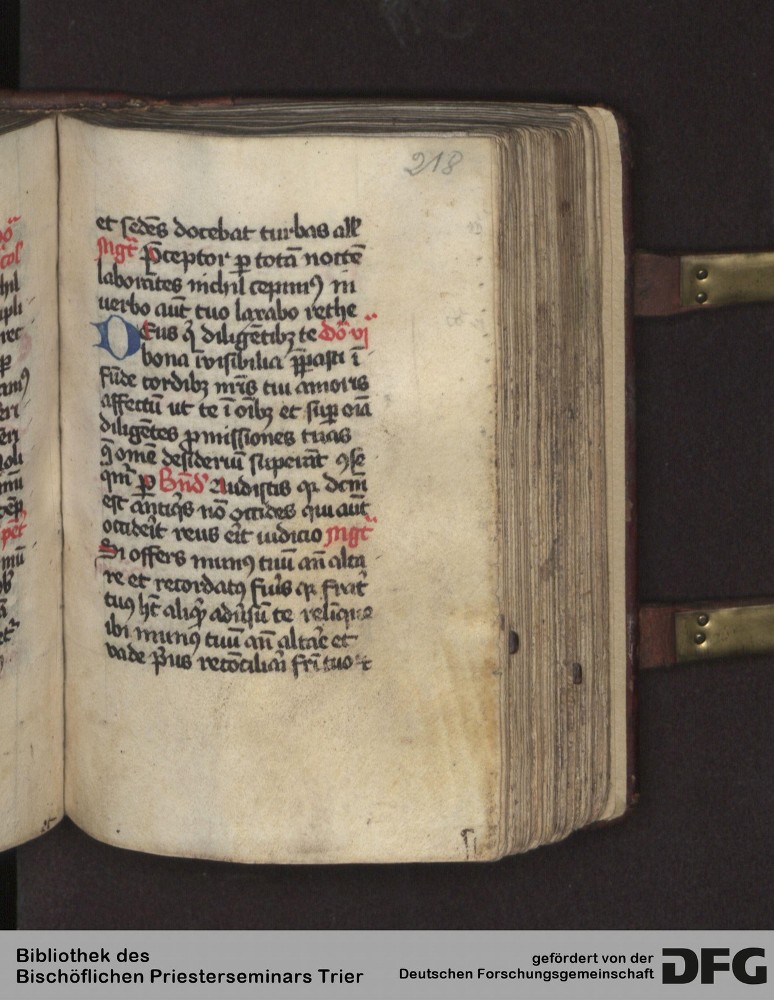 218
et sedēs docebat turbas all'
Mgt' p̄ceptor ꝑ totā noctē
laborātes nichil cepimꝰ in
uerbo aūt tuo laxabo rethe
DEus q̇ diligētibꝫ te dō vi
bona īvisibilia p̄ꝑasti ī
fūde cordibꝫ nr̄is tui amoris
affectū ut te ī oībꝫ et suꝑ oīa
diligētes ꝓmissiones tuas
q̄ omē desideriū superāt ꝯse
qm̄ ꝑ Bn̄d' Audistis qꝫ dcm̄
est antiq̇s nō occides qui aūt
occiderit reus erit iudicio Mgt'
Si offers munꝰ tuū an̄ alta
re et recordatꝰ fu'is qꝫ frat'
tuꝰ hꝫ aliq̇ aduersū te relinque
ibi munꝰ tuū an̄ altare et
vade p̄us recōciliari fr̄i tuo et
Bibliothek des
Bischöflichen Priesterseminars Trier
gefördert von der
Deutschen Forschungsgemeinschaft
DFG